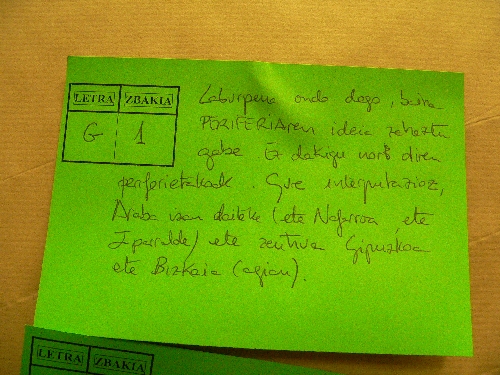 LETRA ZBAKIA
G 1
Laburpena ondo dago, baina
PERIFERIAren ideia zehaztu
gabe. Ez dakigu nork diren
periferietakoak. Gure interpretazioz,
Araba izan daiteke (eta Nafarroa eta
Iparralde) eta zentroa Gipuzkoa
eta Bizkaia (agian).
LETRA ZBAKIA